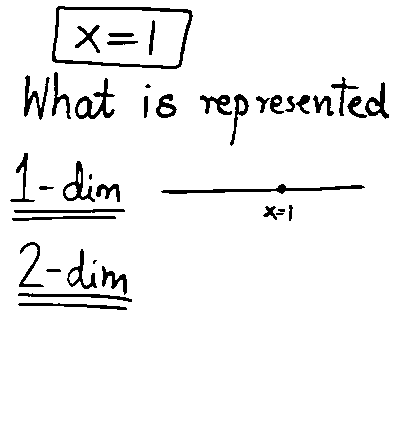 x=1
What is represented
1-dim
x=1
2-dim